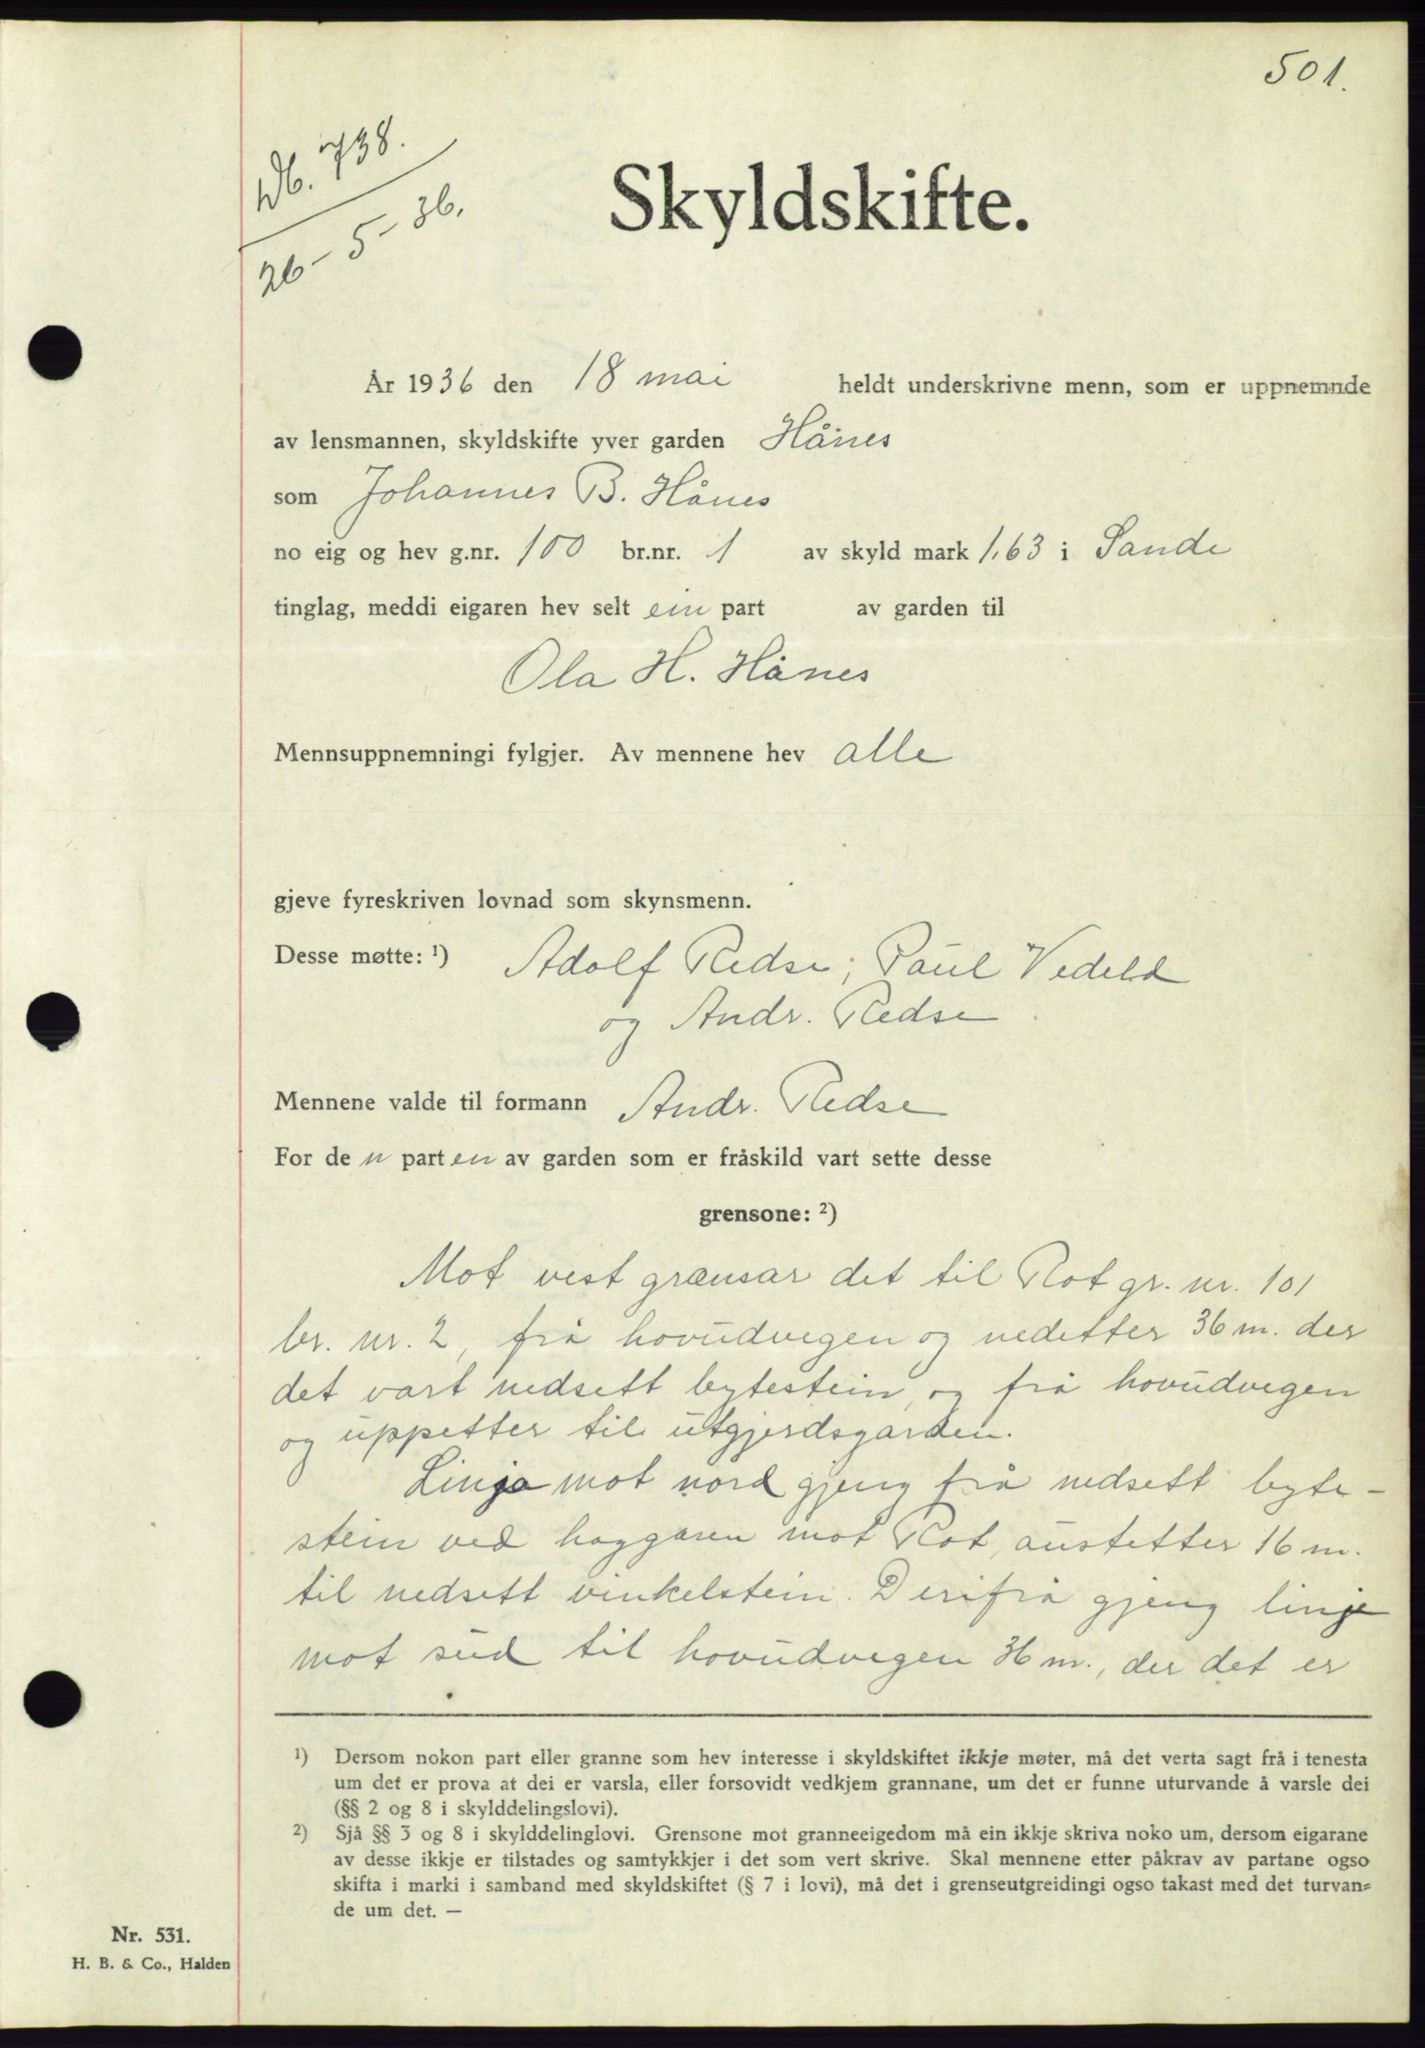 501.
Db. 738.
26-5-36.
Skyldskifte.
År 1936 den 18 mai heldt underskrivne menn, som er uppnemnde
av lensmannen, skyldskifte yver garden Hånes
som Johannes B. Hånes
no eig og hev g.nr. 100 br.nr. 1 av skyld mark 1,63 i Sande
tinglag, meddi eigaren hev selt ein part av garden til
Ola H. Hånes
Mennsuppnemningi fylgjer. Av mennene hev alle
gjeve fyreskriven lovnad som skynsmenn.
Desse møtte: ¹) Adolf Redse, Paul Vedeld
og Andr. Redse
Mennene valde til formann Andr. Redse
For de n part en av garden som er fråskild vart sette desse
grensone: ²)
Mot vest grænsar det til Rot gr. nr. 101
br. nr. 2, frå hovudvegen og nedetter 36 m. der
det vart nedsett bytestein, og frå hovudvegen
og uppetter til utgjerdsgarden.
Linja mot nord gjeng frå nedsett byte-
stein ved haggaren mot Rot, austetter 16 m.
til nedsett vinkelstein. Derifrå gjeng linje
mot sud til hovudvegen 36 m., der det er
¹) Dersom nokon part eller granne som hev interesse i skyldskiftet ikkje møter, må det verta sagt frå i tenesta
um det er prova at dei er varsla, eller forsovidt vedkjem grannane, um det er funne uturvande å varsle dei
(§§ 2 og 8 i skylddelingslovi).
²) Sjå §§ 3 og 8 i skylddelinglovi. Grensone mot granneeigedom må ein ikkje skriva noko um, dersom eigarane
av desse ikkje er tilstades og samtykkjer i det som vert skrive. Skal mennene etter påkrav av partane ogso
skifta i marki i samband med skyldskiftet (§ 7 i lovi), må det i grenseutgreidingi ogso takast med det turvan=
de um det. —
Nr. 531.
H. B. & Co., Halden